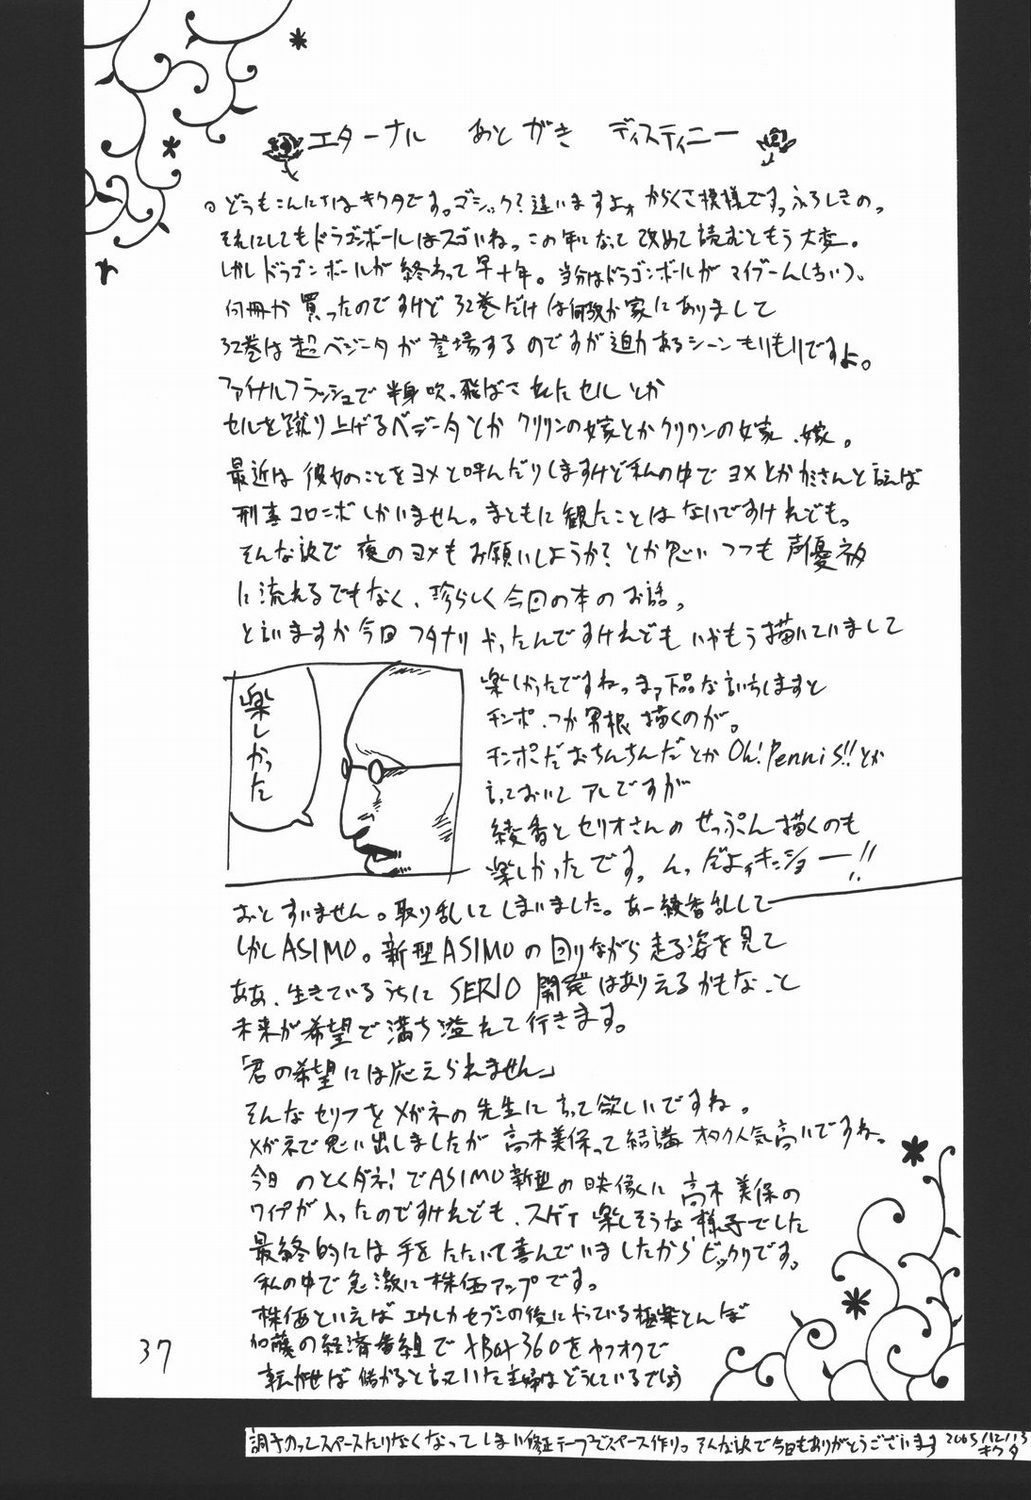 エターナル あとがき ディスティニー
どうもこんにちはキクタです。ゴシック?違いますよォ からくさ模様ですっふろしきの。
それにしてもドラゴンボールはスゴいね。この年になって改めて読むともう大変。
しかしドラゴンボールが終わって早十年。当分はドラゴンボールがマイブーム(古い)。
何冊か買ったのですけど32巻だけは何故か家にありまして
32巻は超ベジータが登場するのですが迫力あるシーンもりもりですよ。
ファイナルフラッシュで半身吹っ飛ばされたセルとか
セルを蹴り上げるベジータとかクリリンの嫁とかクリリンの嫁、嫁。
最近は彼女のことをヨメと呼んだりしますけど私の中でヨメとかカミさんと言えば
刑事コロンボしかいません。まともに観たことはないですけれども。
そんな訳で夜のヨメもお願いしようか?とか思いつつも声優ネタ
に流れるでもなく、珍らしく今回の本のお話。
と言いますか今回フタナリやったんですけれどもいやもう描いていまして
楽しかった
楽しかったですね。まァ下品な言い方しますと
チンポ、つか男根描くのが。
チンポだおちんちんだとかOh! PenniS!!とか
言っておいてアレですが
綾香とセリオさんのせっぷん描くのも
楽しかったです。んっだよォキンショー!!
おっとすいません。取り乱してしまいました。あー綾香乱して
しかしASIMO。新型ASIMOの回りながら走る姿を見て
ああ、生きているうちにSERIO開発はありえるかもなっと
未来が希望で満ち溢れて行きます。
「君の希望には応えられません」
そんなセリフをメガネの先生に言って欲しいですね。
メガネで思い出しましたが高木美保って結構オタク人気高いですね。
今日のとくダネ!でASIMO新型の映像に高木美保の
ワイプが入ったのですけれども、スゲェ楽しそうな様子でした
最終的には手をたたいて喜んでいましたからビックリです。
私の中で急激に株価アップです。
株価といえばエウレカセブンの後にやっている極楽とんぼ
加藤の経済番組でXBOX360をヤフオクで
転売せば儲かると言っていた主婦はどうしているでしょう
37
調子のってスペースたりなくなってしまい修正テープでスペース作りっ。そんな訳で今日もありがとうございます 2005/12/13
キクタ